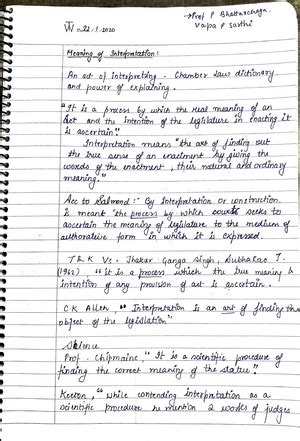 → Prof P Bhattacharya.
Vepa P Sarthi
22/1/2020
Meaning of Interpretation:
An act of interpreting - Chamber Law dictionary
and power of explaining.
"It is a process by which the Real meaning of an
Act and the intention of the legislature in enacting it
is ascertain."
Interpretation means "the art of finding out
the true sense of an enactment by giving the
words of the enactment, their natural and ordinary
meaning."
Acc to Salmond:- By Interpretation or construction
is meant the process by which courts seeks to
ascertain the meaning of legislature to the medium of
authorative form in which it is expressed.
Vs. Thakur Ganga Singh,
(1962) "it is a process which the true meaning &
intention of any provision of act is ascertain.
C K Allen, "Interpretation is an art of finding the
object of the legislation"
Science
Prof. Chipmaine, "It is a scientific procedure of
finding the correct meaning of the statue."
Keeton, "While contending interpretation as a
scientific procedure he mention 2 works of judges